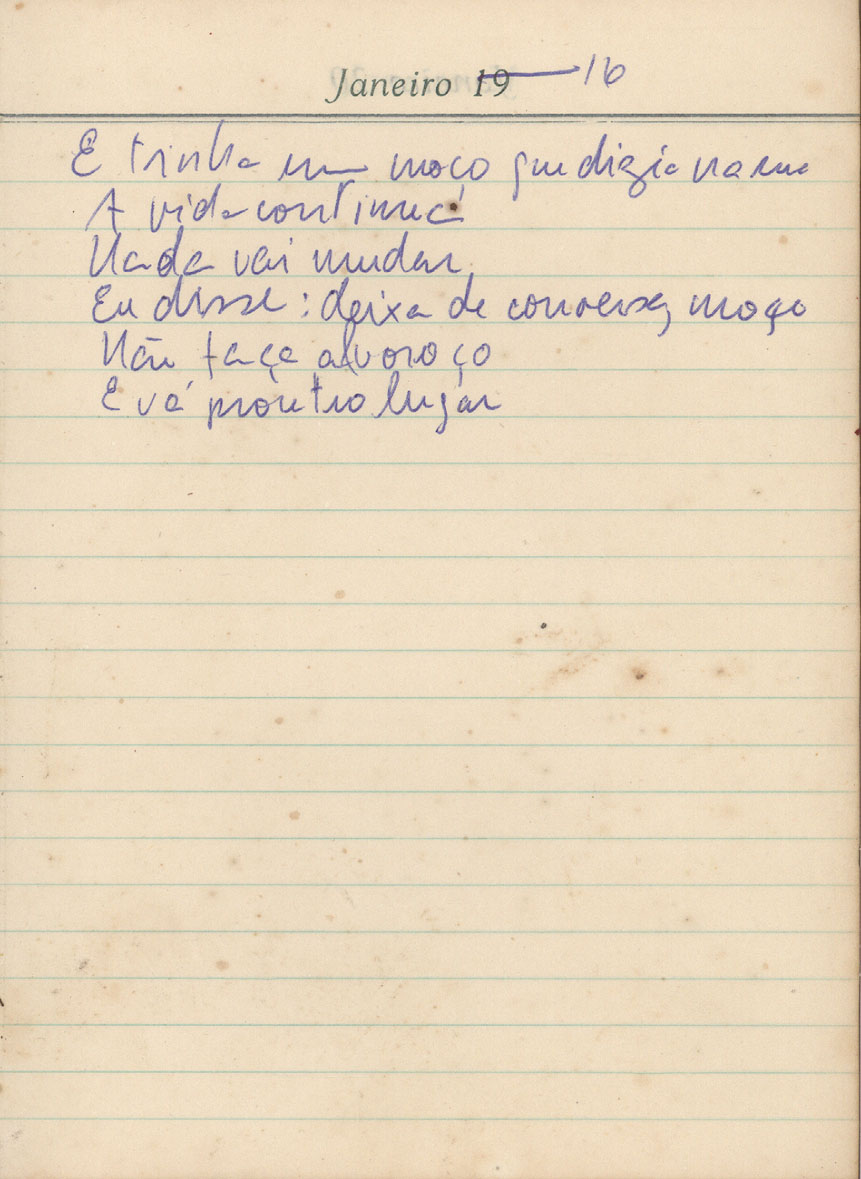 Janeiro 19 16
E tinha um moço que dizia na rua
A vida continua
Nada vai mudar
Eu disse: deixa de conversa, moço
Não faça alvoroço
E vá prôutro lugar